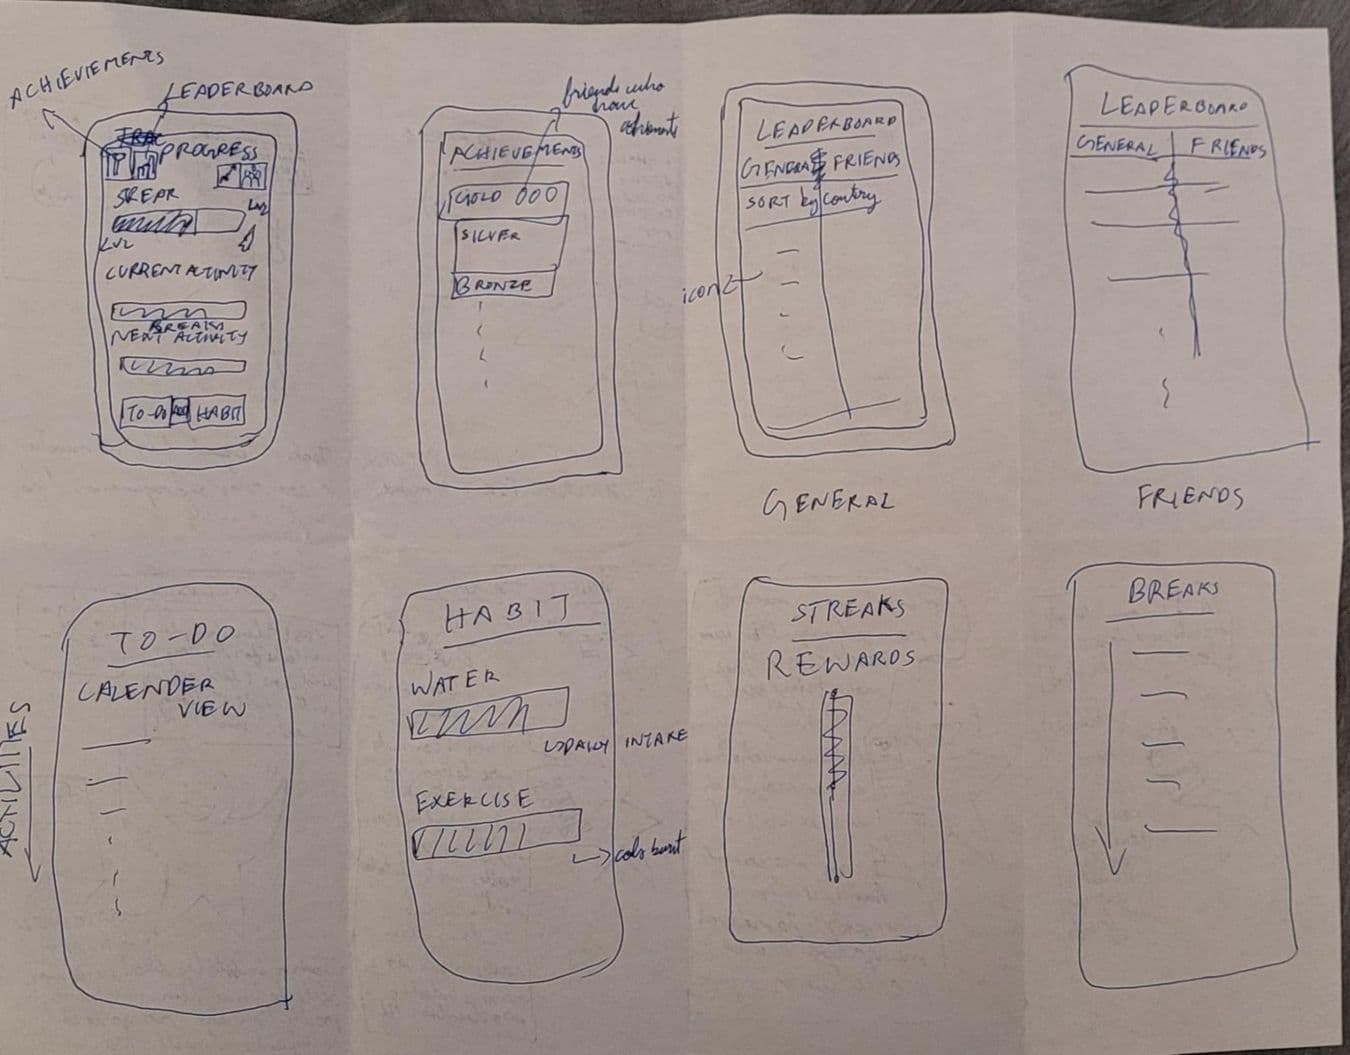 ACHIEVEMENTS
LEADERBOARD
PROGRESS
LVL
LVL
CURRENT ACTIVITY
BREAKS
NEXT ACTIVITY
TO-DO HABIT
friends who
have
ACHIEVEMENTS
GOLD
SILVER
BRONZE
LEADERBOARD
GENERAL FRIENDS
SORT by country
GENERAL
LEADERBOARD
GENERAL FRIENDS
FRIENDS
TO-DO
CALENDER
VIEW
ACTIVITIES
HABIT
WATER
DAILY INTAKE
EXERCISE
cals burnt
STREAKS
REWARDS
BREAKS